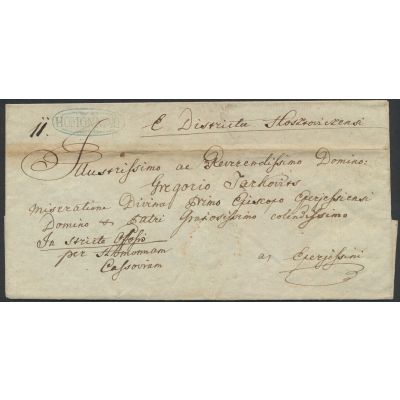 11. HOMONNA E. Districtu Hosztoviczensi
Illustrissimo ac Reverendissimo Domino:
Gregorio Tarkovits
Miseratione Divina Primo Episcopo Eperjessiensi
Domino & Patri Gratiosissimo colendissimo
In stricto Offoso
per Homonnam
Cassoviam
a Eperjessini